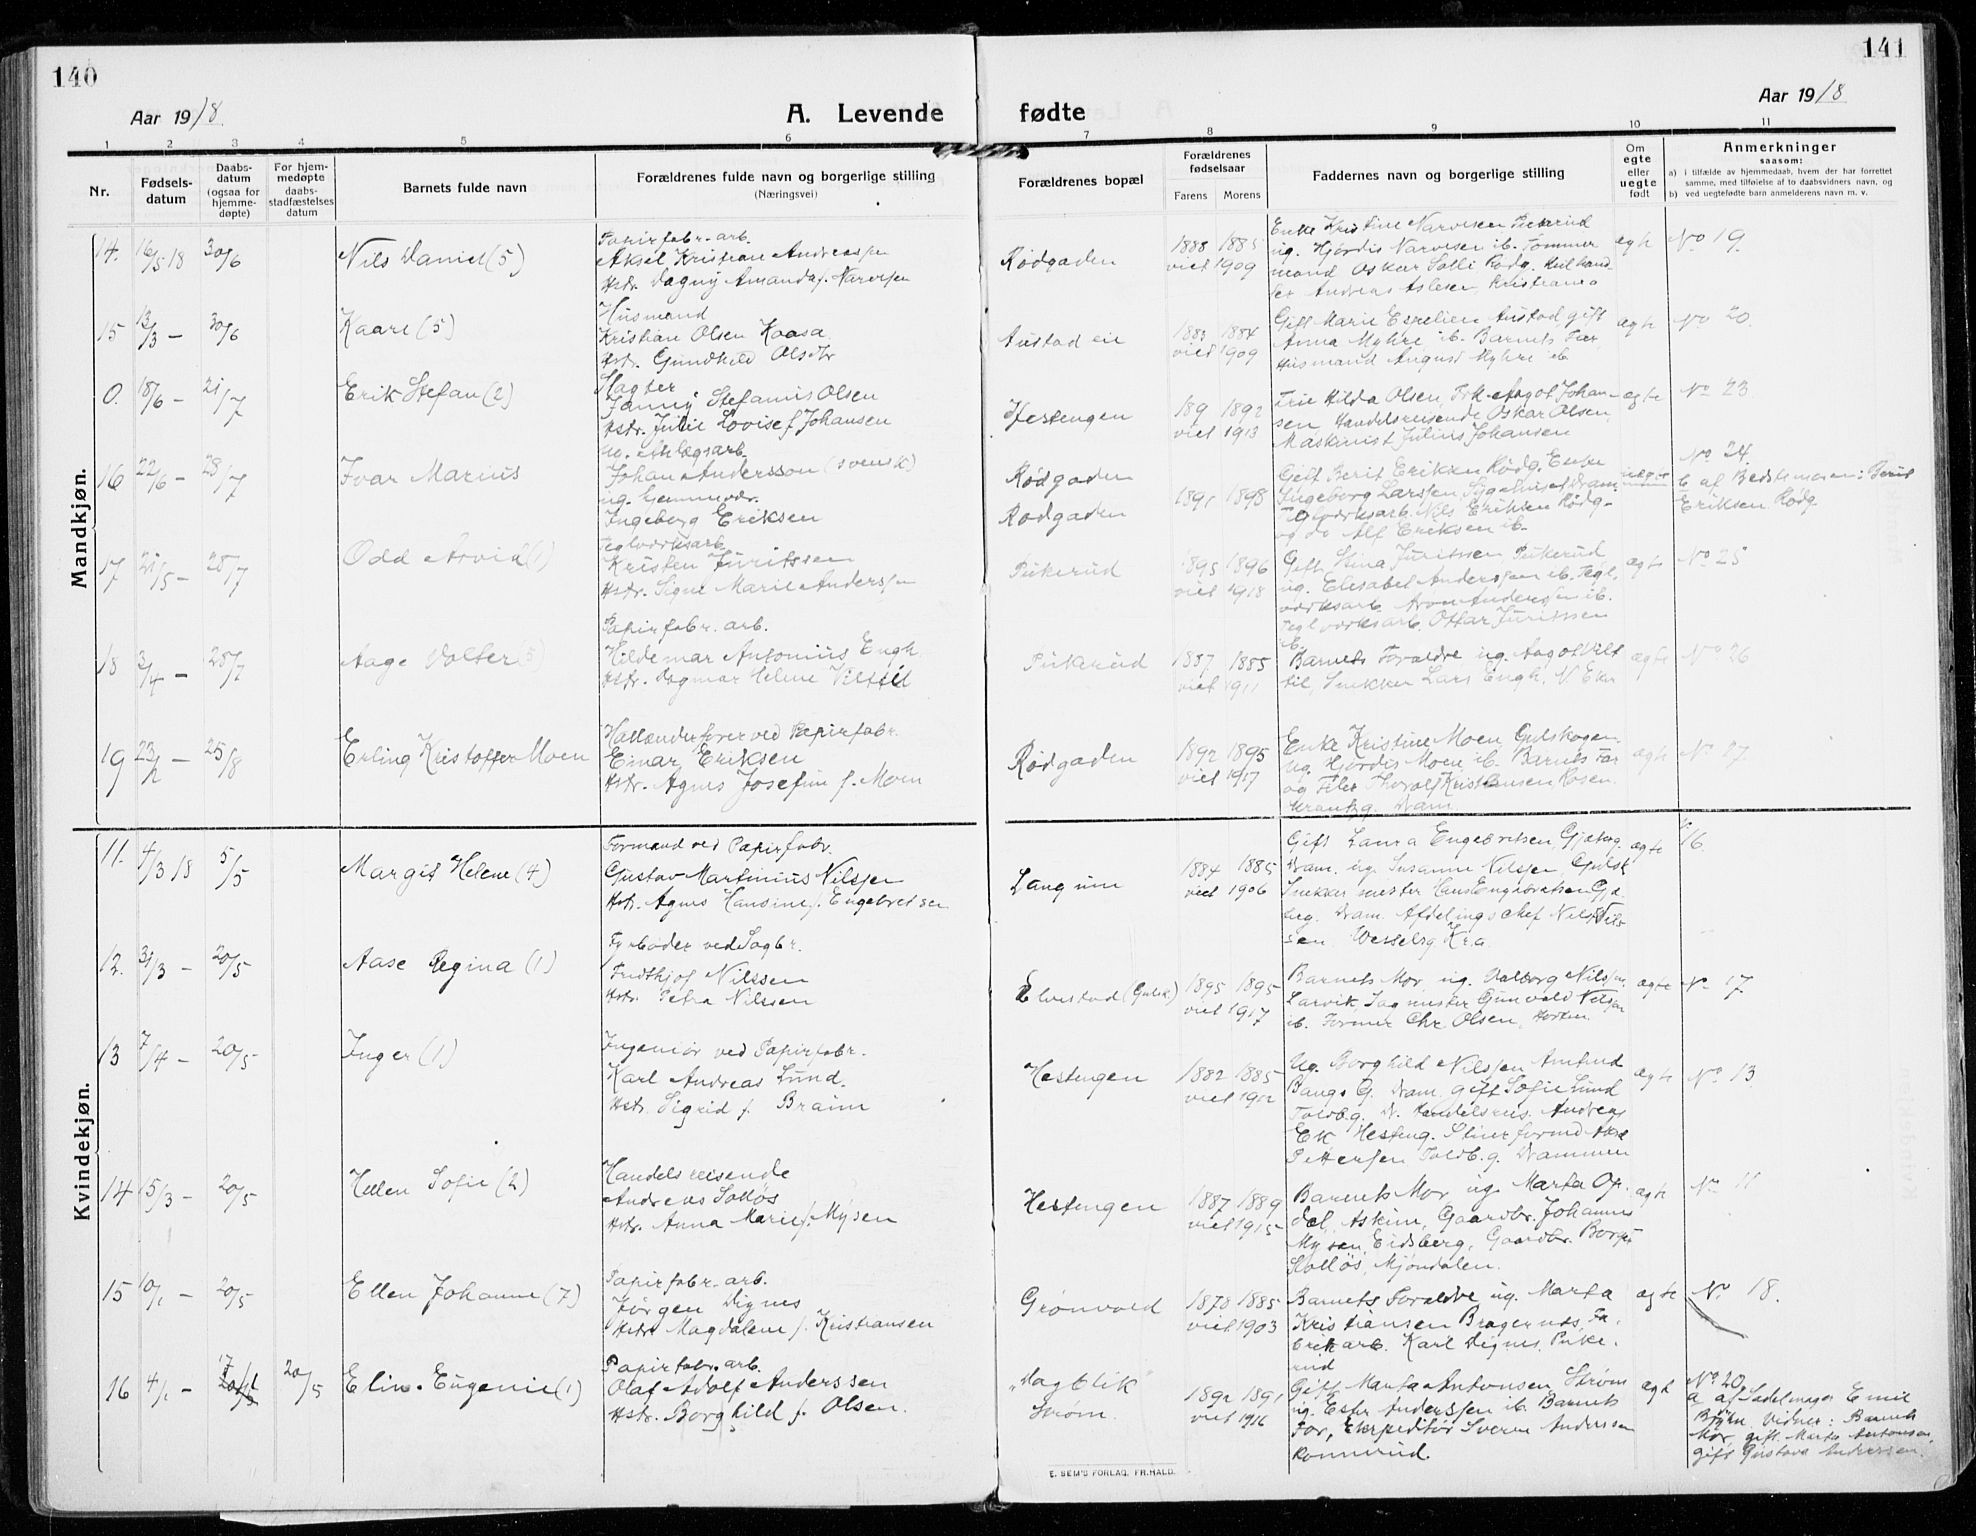 140
141
Aar 1918
A. Levende fødte
Aar 1918
1 2 3 4 5 6 7 8 9 10 11
Nr.
Fødsels-
datum
Daabs-
datum
(ogsaa for
hjemme-
døpte)
For hjem-
medøpte
daabs-
stadfæstelses
datum
Barnets fulde navn
Forældrenes fulde navn og borgerlige stilling
(Næringsvei)
Forældrenes bopæl
Forældrenes
fødselsaar
Farens Morens
Faddernes navn og borgerlige stilling
Om
egte
eller
uegte
født
Anmerkninger
saasom:
a) i tilfælde av hjemmedaab, hvem der har forrettet
samme, med tilføielse af to daabsvidners navn, og
b) ved uegtefødte barn anmelderens navn m. v.
Mandkjøn.
14. 16/5 18 30/6
Nils Daniel (5)
Papirfabr. arb.
Aksel Kristian Andreassen
Hstr. Dagny Amanda f. Narvesen
Rødgaden
1888 1885
viet 1909
Enke Kristine Narvesen Pukerud
ug. Hjørdis Narvesen ib. Tømmer
mand Oskar Solli Rødg. Hvilhand-
ler Andreas Aslesen, Kristiania
ægte
No 19.
15 13/3 – 30/6
Kaare (5)
Husmand
Kristian Olsen Kaasa
Hstr. Gundhild Olsdtr
Austad eie
1883 1884
viet 1909
Gift Marie Espelien Austad gift
Anna Myhre ib. Barnets Far
Husmand August Myhre ib.
ægte
No 20.
0. 18/6 – 21/7
Erik Stefan (2)
Slagter
Janny Stefanus Olsen
Hstr. Julie Lovise f. Johansen
Hestengen
189 1892
viet 1913
Frie Hilda Olsen, Frk. Aagot Johan-
sen Handelsreisende Oskar Olsen,
Maskinist Julius Johansen
ægte
No 23
16 22/6 – 28/7
Ivar Marius
Johan Andersson (svensk)
ug.
Ingeborg Eriksen
Rødgaden
Rødgaden
1891 1898
Gift Berit Eriksen Rødg. Enke
Ingeborg Larssen, Sygehuset Dram.
Teglværksarb. Nils Eriksen Rødg.
og do Alf Eriksen ib.
uægte
No 24
b af Bedstemoren: Berit
Eriksen Rodg.
17 21/5 – 28/7
Odd Arvid (1)
Teglværksarb.
Kristen Juritssen
Hstr. Signe Marie Anderssen
Pukerud
1895 1896
viet 1918
Gift Stina Juritssen Pukerud
ug. Elisabet Anderssen ib. Tegl.
værksarb. Arne Anderssen ib.
Teglværksarb. Ottar Juritssen
ib.
ægte
No 25
18 3/4 – 28/7
Aage Volter (5)
Papirfabr. arb.
Hildemar Antonius Engh
Hstr. Dagmar Helene Viltil
Pukerud
1887 1885
viet 1911
Barnets Foraldre ug. Aagot Vilt
til, Snekker Lars Engh, N Eker
ægte
No 26
19 23/2 – 25/8
Erling Kristoffer Moen
Hollænderfører ved Papirfabr.
Einar Eriksen
Hstr. Agnes Josefine f. Moen
Rødgaden
1892 1895
viet 1917
Enke Kristine Moen Gulskogen
ug. Hjørdis Moen ib. Barnets Far
og Filer Thorolf Kristiansen Rosen
krantzg. Dram.
ægte
No 27
Kvindekjøn.
11. 4/3 18 5/5
Margit Helene (4)
Formand ved Papirfabr.
Gustav Martinius Nilsen
Hstr. Agnes Hansine f. Engebretsen
Langum
1884 1885
viet 1906
Gift Laura Engebretsen, Gjeterg.
Dram. ug. Susanne Nilssen, Gulsk
Snekkermester Hans Engebretsen Gje
terg. Dram. Afdelingschef Nils Nils-
sen. Wesselsg. Kr.a.
ægte
16.
12. 31/3 – 20/5
Aase Regina (1)
Fyrbøder ved Sagbr.
Fridthjof Nilssen
Hstr. Petra Nilssen
Elvestad (Gulsk.)
1895 1895
viet 1917
Barnets Mor, ug. Valborg Nilssen
Larvik, Sagmester Gunvald Nilsen
ib. Former Chr. Olsen, Horten
ægte
No 17
13 7/4 – 20/5
Inger (1)
Ingeniør ved Papirfabr.
Karl Andreas Lund.
Hstr. Sigrid f. Braun
Hestengen
1882 1885
viet 1912
Ug. Borghild Nilssen Amtmd
Bangs G. Dram. gift Sofie Lund
Toldb.g. D. Handelsreis. Andreas
Ek Hesteng.
Pettersen Toldb.g. Drammen
ægte
No 13
14 15/3 – 20/5
Hellen Sofie (2)
Handelsreisende
Andreas Solløs
Hstr. Anna Marie f. Mysen
Hestengen
1887 1889
viet 1915
Barnets Mor ug. Marta Op-
dal, Askim, Gaardbr. Johannes
Mysen, Eidsberg, Gaardbr. Borger
Solløs, Mjøndalen.
ægte
No 11
15 10/1 – 20/5
Ellen Johanne (7)
Papirfabr. arb.
Jørgen Dignes
Hstr. Magdalene f. Kristiansen
Grønvold
1878 1885
viet 1903
Barnets Foraldre ug. Marta
Kristiansen Bragernæs, Fa-
brikarb. Karl Dignes, Puke-
rud
ægte
No 18.
16 4/1 – 20/5
Elin Eugenie (1)
Papirfabr. arb.
Olaf Adolf Anderssen
Hstr. Borghild f. Olsen.
„Dagblik"
Strøm.
1892 1891
viet 1916
Gift Marta Antonsen Strøm
ug. Ester Anderssen ib. Barnets
Far, Ekspeditør Sverre Anderssen
Rømmerud.
ægte
No 20
a af Sadelmager Emil
Bjørn Vidner: Barnets
Mor, gift Marta Antonsen,
gift Gustava Anderssen.
E. SEM'S FORLAG, FR.HALD.